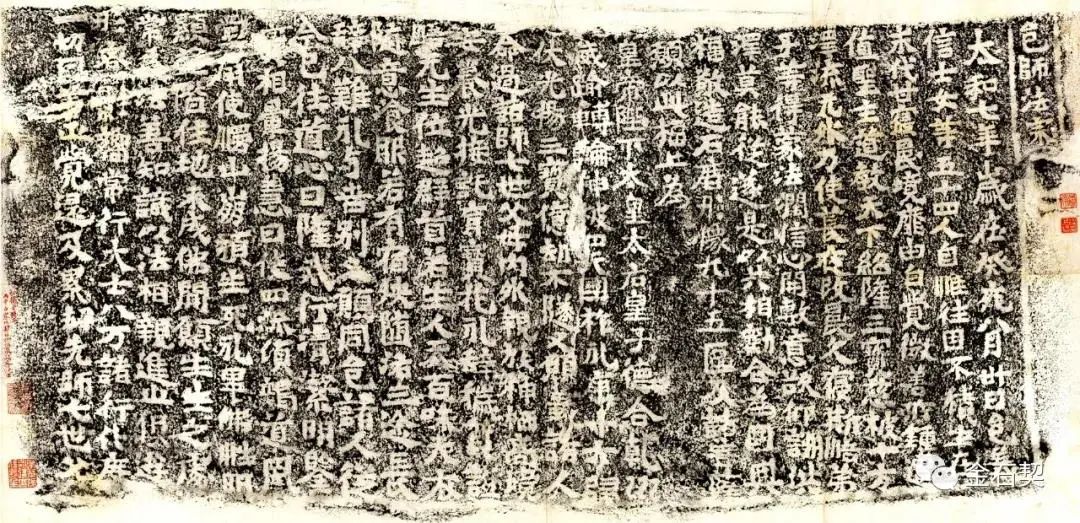 邑師法宗
太和七年歲在癸亥八月卅日邑義
信士女等五十四人自惟往因不積生在
末代甘寢昏境靡由自覺微善所鍾
值聖主道教天下紹隆三寶慈被十方
澤流無外乃使長夜改昏久寢斯悟弟
子等得蒙法潤信心開敷意欲仰酬洪
澤莫能從遂是以共相勸合為國興
福敬造石廟形像九十五區及諸菩薩
願以此福上為
皇帝陛下太皇太后皇子德合乾坤
威踰轉輪神被四天國祚永康十方歸
伏光揚三寶億劫不墜又願義諸人
命過諸師七世父母內外親族神栖高境
安養光接託育寶花永辭穢質證
悟無生位超群首若生人天百味天衣
隨意飡服若有宿殃墮洛三途長
辭八難永與苦別又願同邑諸人從
今已往道心日隆戒行清潔明鑒
實相暈揚慧日使四流傾竭道風
扇使慢山崩頹生死永畢佛性明
顯登階住地未成佛間願生生之處
常為法善知識以法相親進止俱遊
形容影嚮常行大士八万諸行化度
一切同善正覺逮及累劫先師七世父
金石契